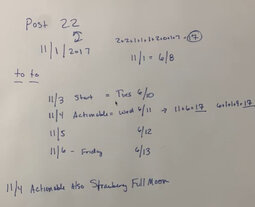 Post 22
11/1/2017
11/1 = 6/8
17
to to
11/3 Start = Tues 6/10
11/4 Actionable = Wed 6/11 → 11+6=17 6+1+1+9=17
11/5 6/12
11/6 - Friday 6/13
11/4 Actionable Also Strawberry Full Moon